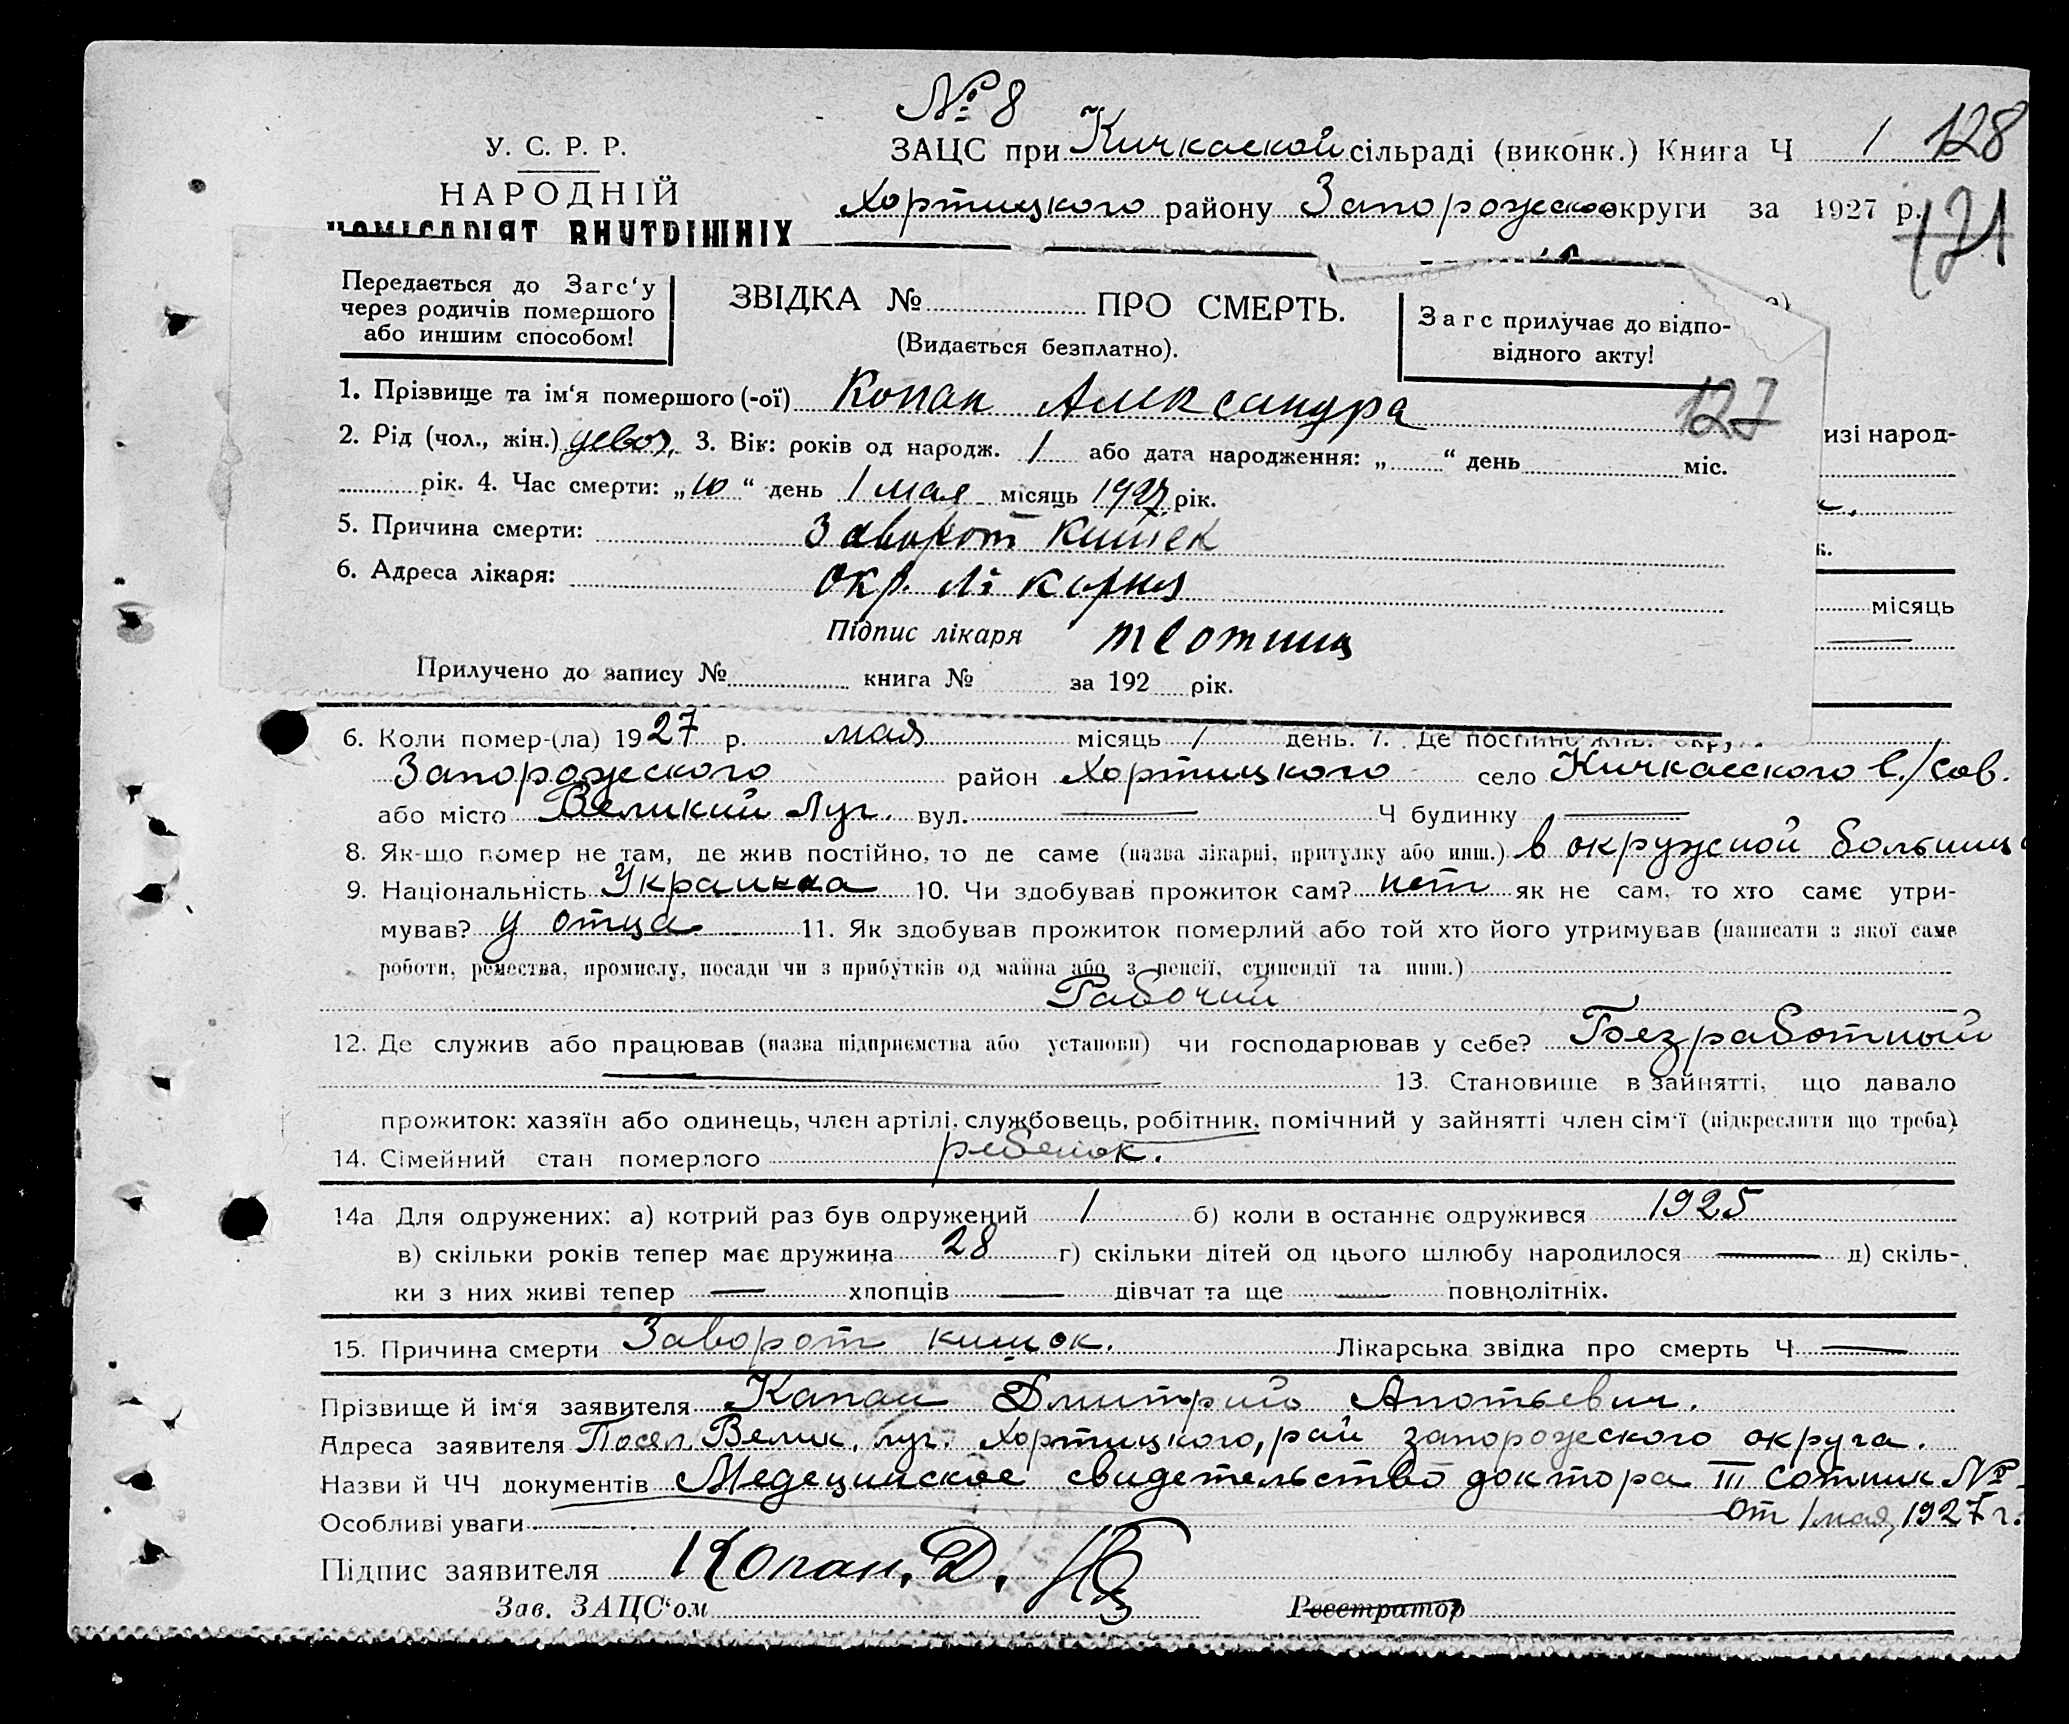 № 8
У. С. Р. Р.
ЗАЦС при Кичкаской сільраді (виконк.) Книга Ч 1 128
НАРОДНІЙ
Хортицкого району Запорожско округи за 1927 р. 121
КОМІСАРІЯТ ВНУТРІШНІХ
Передається до Загс'у
через родичів помершого
або иншим способом!
ЗВІДКА № ПРО СМЕРТЬ.
(Видається безплатно).
Загс прилучає до відпо-
відного акту!
127
1. Прізвище та ім'я помершого (-ої) Копан Александра
2. Рід (чол., жін.) девоч. 3. Вік: років од народж. 1 або дата народження: „ “ день міс.
рік. 4. Час смерти: „10“ день 1 мая місяць 1927 рік.
5. Причина смерти: Заворот кишек
6. Адреса лікаря: Окр. лікарня
Підпис лікаря
Прилучено до запису № книга № за 192 рік.
изі народ-
к.
місяць
6. Коли помер-(ла) 1927 р. мая місяць 1 день. 7. Де постійно жив: окр
Запорожского район Хортицкого село Кичкасского с./сов.
або місто Великий Луг. вул. — Ч будинку —
8. Як-що помер не там, де жив постійно, то де саме (назва лікарні, притулку або инш.) в окружной больниц
9. Національність Украинка 10. Чи здобував прожиток сам? нет як не сам, то хто саме утри-
мував? у отца 11. Як здобував прожиток померлий або той хто його утримував (написати з якої саме
роботи, ремества, промислу, посади чи з прибутків од майна або з пенсії, стипендії та инш.)
Рабочий
12. Де служив або працював (назва підприємства або установи) чи господарював у себе? Безработный
— 13. Становище в зайнятті, що давало
прожиток: хазяїн або одинець, член артілі, службовець, робітник, помічний у зайнятті член сім'ї (підкреслити що треба)
14. Сімейний стан померлого ребенок.
14а Для одружених: а) котрий раз був одружений 1 б) коли в останнє одружився 1925
в) скільки років тепер має дружина 28 г) скільки дітей од цього шлюбу народилося — д) скіль-
ки з них живі тепер — хлопців — дівчат та ще — повнолітніх.
15. Причина смерти Заворот кишок. Лікарська звідка про смерть Ч —
Прізвище й ім'я заявителя Капан Дмитрий
Адреса заявителя Посел. Велик. луг. Хортицкого, рай запорожского округа.
Назви й ЧЧ документів Медецинское свидетельство доктора III сотник №
Особливі уваги от 1 мая, 1927 г.
Підпис заявителя Копан. Д.
Зав. ЗАЦС'ом Реєстратор